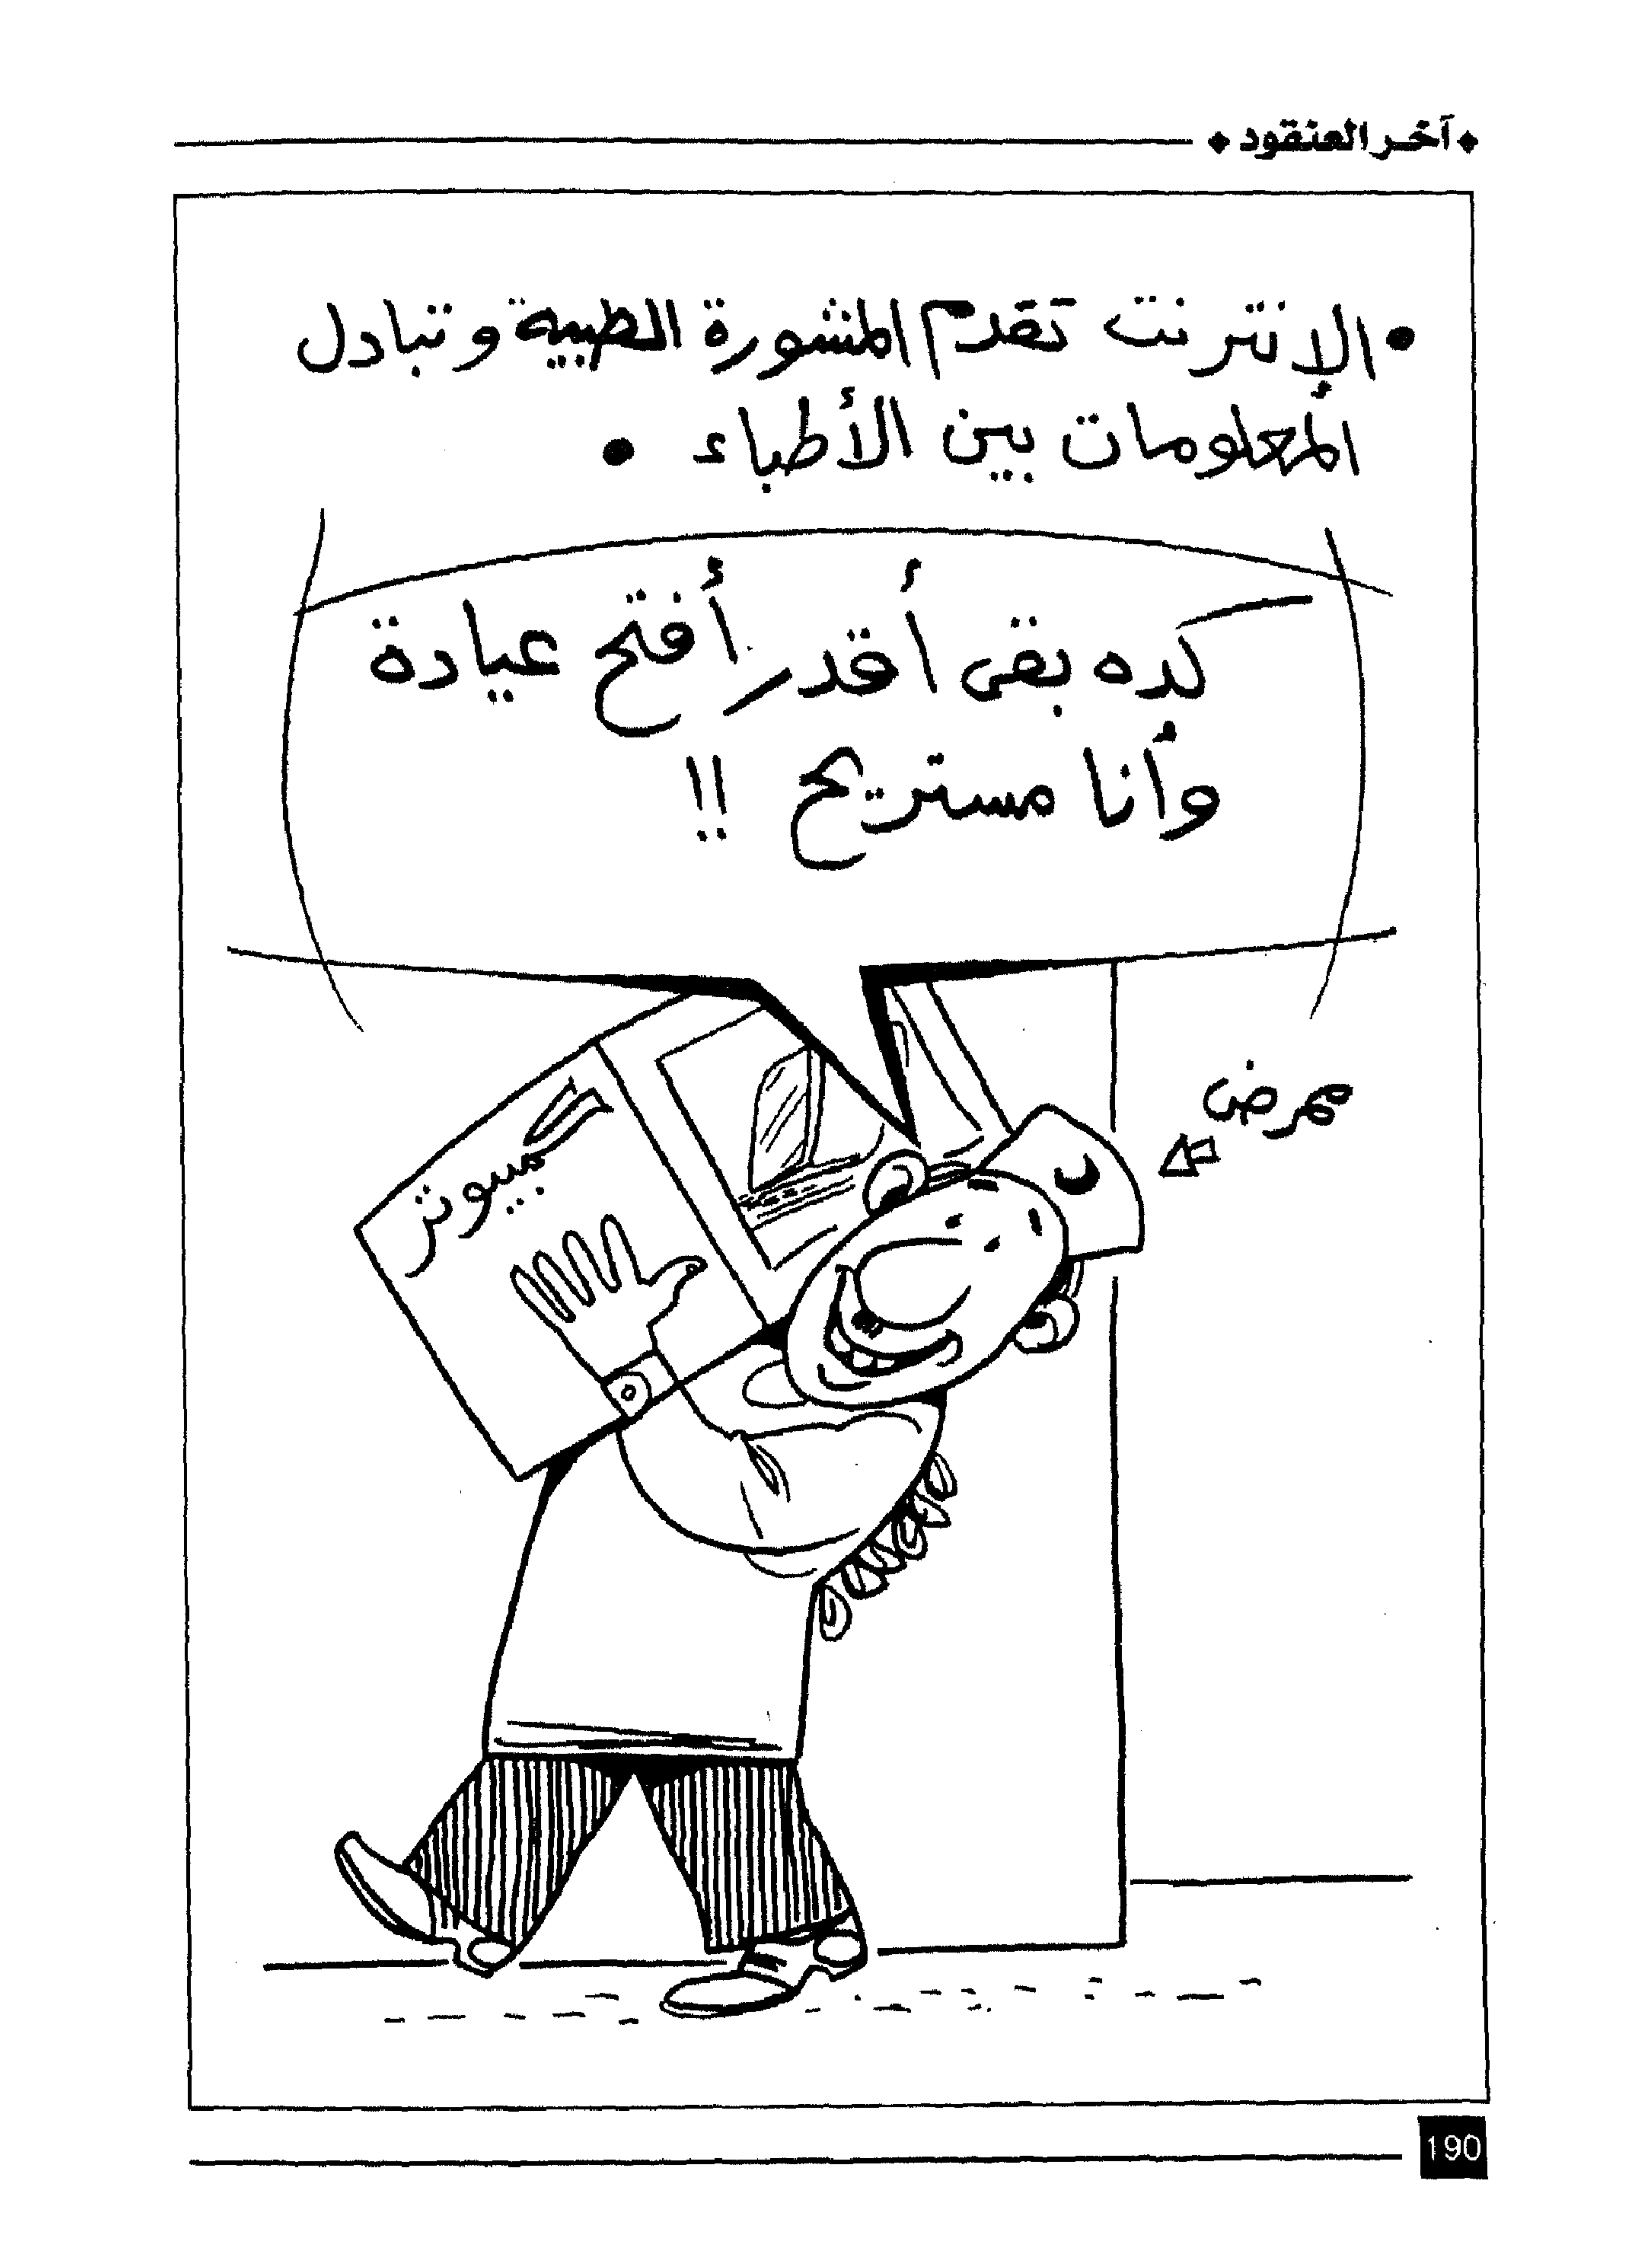 آخر العنقود
• الإنترنت تقدم المشورة الطبية وتبادل
المعلومات بين الأطباء •
كده بقى أقدر أفتح عيادة
وأنا مستريح !!
ممرض
كمبيوتر
190